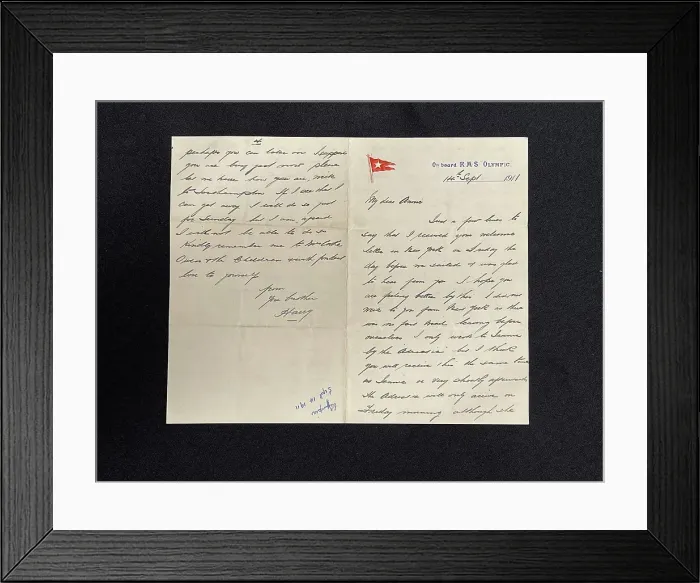 4
perhaps you can later on I suppose
you are busy just now please
let me know how you are write
to Southampton If I see that I
can get away I will do so just
for Sunday but I am afraid
I will not be able to do so
Kindly remember me to
the Children with fondest
love to yourself
from
Your brother
Harry
Olympic
Sept 14 1911
On board R.M.S. OLYMPIC.
14th Sept 1911
My dear Annie
Just a few lines to
say that I received your welcome
letter in New York on Friday the
day before we sailed I was glad
to hear from you I hope you
are feeling better by this I did not
write to you from New York as there
was no fast mail leaving before
ourselves I only wrote to Jeannie
by the but I think
you will receive this the same time
as Jeannie or very shortly afterwards
The will only arrive on
Friday morning although she